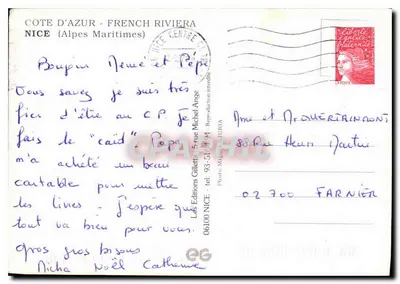 COTE D'AZUR - FRENCH RIVIERA
NICE (Alpes Maritimes)
Bonjour Mémé et Pépé
Vous savez je suis très
fier d'être au CP je
fais le "caïd". Papa
m'a acheté un beau
cartable pour mettre
les livres. J'espère que
tout va bien pour vous.
gros gros bisous
Micha Noël Catherine
Les Editions Giletta - 5, rue Michel Ange
06100 NICE tel 93-51
NICE CENTRE
Mme et Mr
88 Rue Henri Martin
02 700 FARNIER